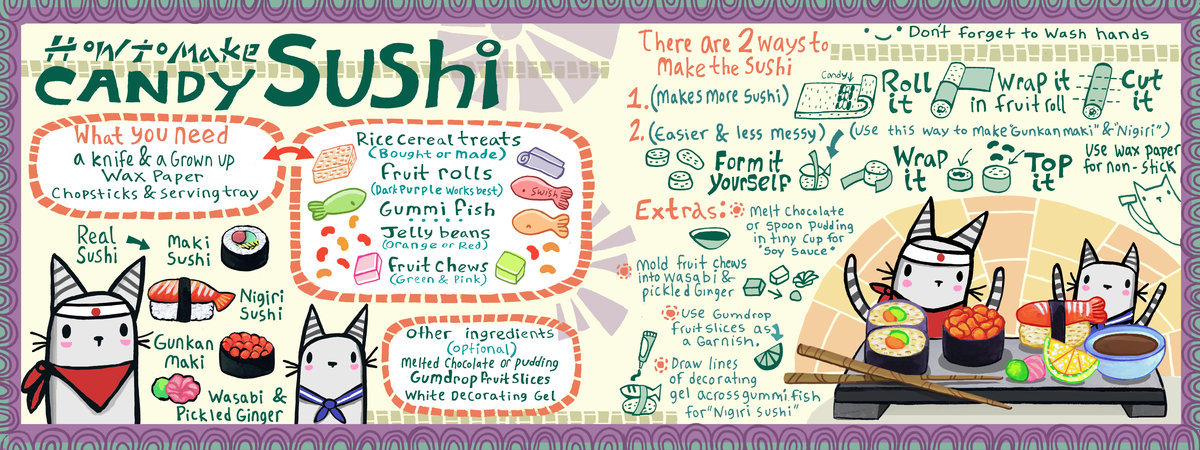 How to Make
CANDY Sushi
What you need
a knife & a Grown up
Wax Paper
Chopsticks & Serving tray
Rice Cereal treats
(Bought or made)
Fruit rolls
(Dark Purple Works best)
Gummi fish
Jelly beans
(Orange or Red)
Fruit Chews
(Green & Pink)
Swish
Real
Sushi
Maki
Sushi
Nigiri
Sushi
Gunkan
Maki
Wasabi &
Pickled Ginger
Other ingredients
(optional)
Melted Chocolate or pudding
Gumdrop Fruit Slices
White Decorating Gel
There are 2 ways to
make the Sushi
Don't forget to wash hands
1. (Makes More Sushi)
Candy
Roll
it
Wrap it
in fruit roll
Cut
it
2. (Easier & less messy)
(Use this way to make "Gunkan maki" & "Nigiri")
Form it
yourself
Wrap
it
Top
it
Use wax paper
for non-stick
Extras:
Melt Chocolate
or spoon Pudding
in tiny Cup for
"Soy Sauce"
Mold fruit chews
into Wasabi &
pickled Ginger
Use Gumdrop
fruit slices as
a Garnish.
Draw lines
of decorating
gel across gummi fish
for "Nigiri Sushi"